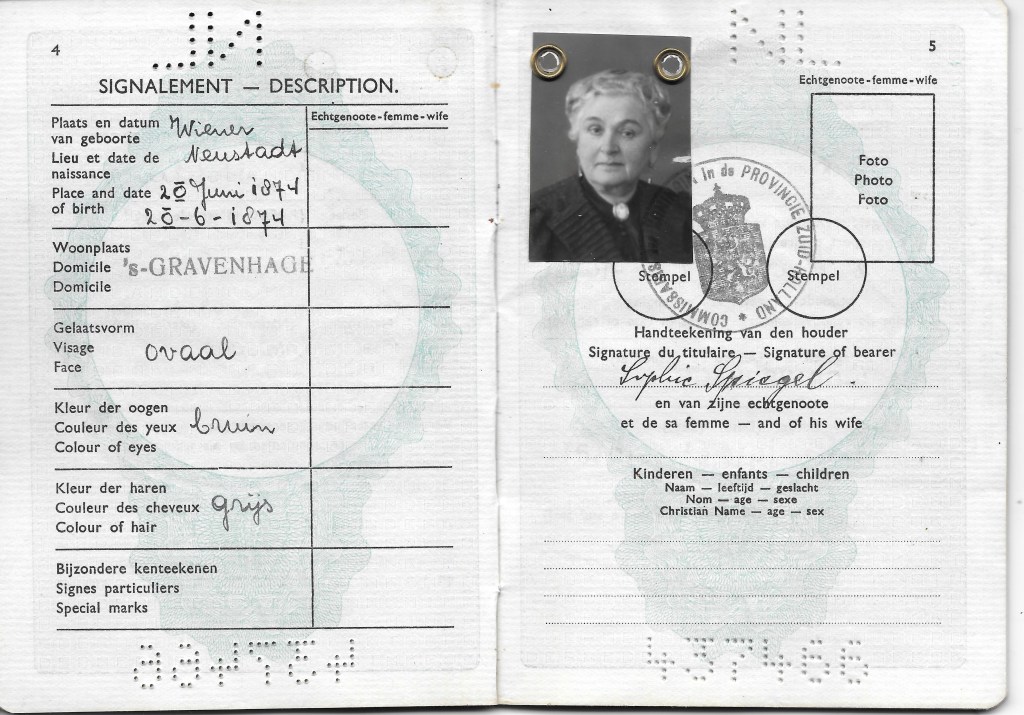 4
SIGNALEMENT — DESCRIPTION.
Echtgenoote-femme-wife
Plaats en datum
van geboorte
Lieu et date de
naissance
Place and date
of birth
Wiener
Neustadt
20 Juni 1874
20-6-1874
Woonplaats
Domicile
Domicile
's-GRAVENHAGE
Gelaatsvorm
Visage
Face
ovaal
Kleur der oogen
Couleur des yeux
Colour of eyes
bruin
Kleur der haren
Couleur des cheveux
Colour of hair
grijs
Bijzondere kenteekenen
Signes particuliers
Special marks
NL
5
Echtgenoote-femme-wife
Foto
Photo
Foto
in de PROVINCIE ZUID-HOLLAND * COMMISSARIS
Stempel
Stempel
Handteekening van den houder
Signature du titulaire — Signature of bearer
Sophie Spiegel.
en van zijne echtgenoote
et de sa femme — and of his wife
Kinderen — enfants — children
Naam — leeftijd — geslacht
Nom — age — sexe
Christian Name — age — sex
437466